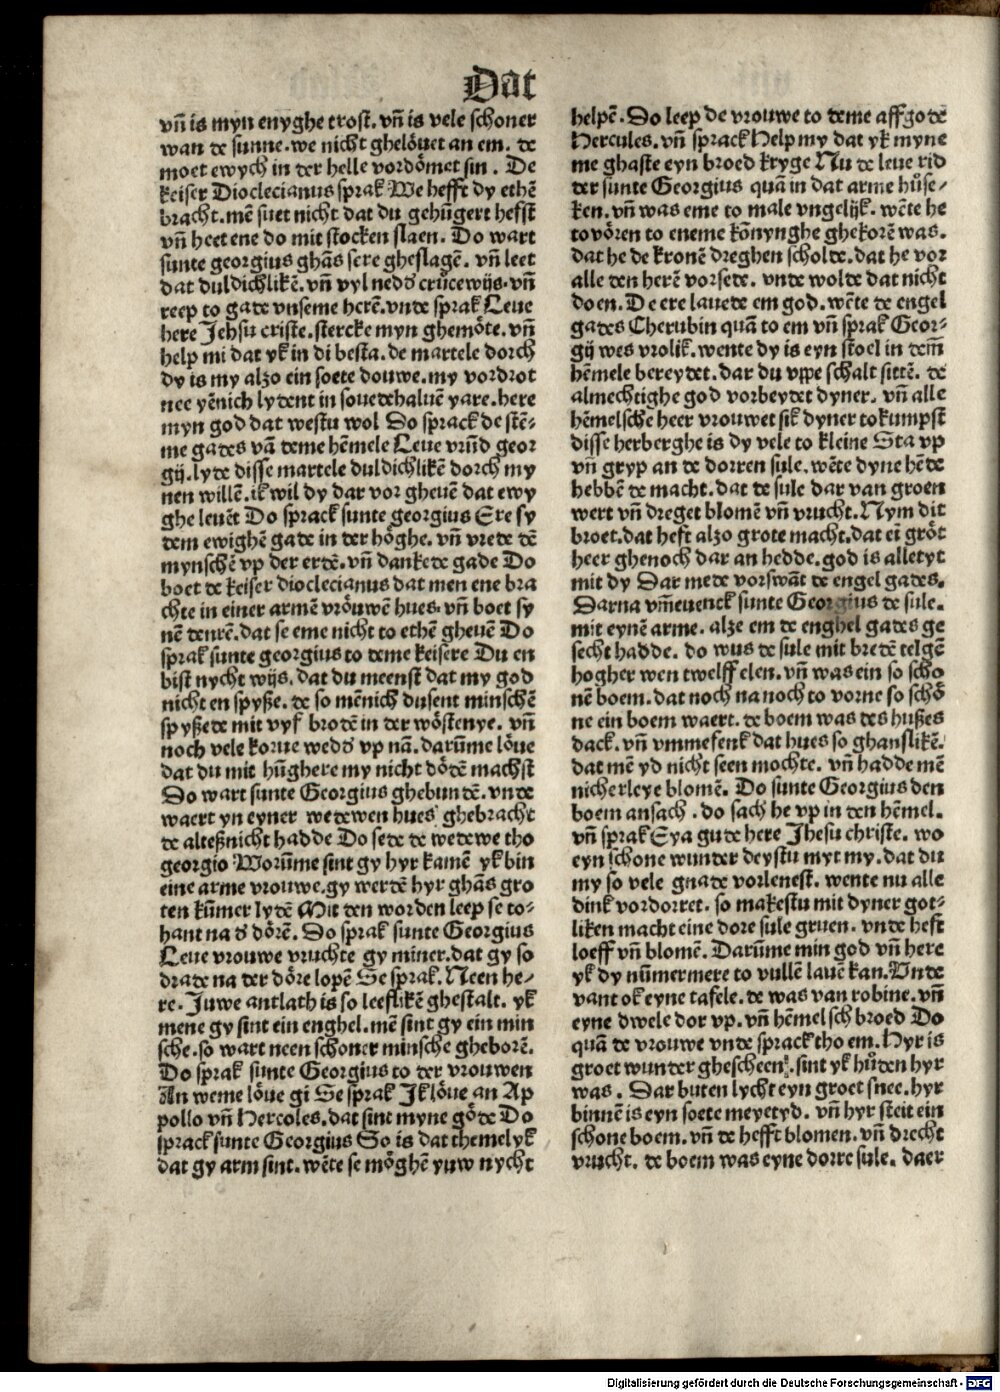 Dat
vñ is myn enyghe trost. vñ is vele schoner
wan de sunne. we nicht ghelöuet an em. de
moet ewych in der helle vordömet sin. De
keiser Dioclecianus sprak We hefft dy ethē
bracht. mē suet nicht dat du gehūgert hefst
vñ heet ene do mit stocken slaen. Do wart
sunte georgius ghās sere gheslagē. vñ leet
dat duldichlikē. vñ vyl neds crücewijs. vñ
reep to gade vnseme herē. vnde sprak Leue
here Jehsu criste. stercke myn ghemöte. vñ
help mi dat yk in di besta. de martele dorch
dy is my alzo ein soete douwe. my vordrot
nee yēnich lydent in souedehaluē yare. here
myn god dat westu wol Do sprack de stē-
me gades vā deme hēmele Leue vrūd geor
gij. lyde disse martele duldichlikē dorch my
nen willē. ik wil dy dar vor gheuē dat ewy
ghe leuēt Do sprack sunte georgius Ere sy
dem ewighē gade in der höghe. vñ vrede dē
mynschē vp der erdē. vñ dankede gade Do
boet de keiser dioclecianus dat men ene bra
chte in einer armē vröuwē hues. vñ boet sy
nē denrē. dat se eme nicht to ethē gheuē Do
sprak sunte georgius to deme keisere Du en
bist nycht wijs. dat du meenst dat my god
nicht en spyße. de so mēnich dusent minschē
spyßede mit vyf brodē in der wöstenye. vñ
noch vele korue weds vp nā. darūme löue
dat du mit hūghere my nicht dödē machst
Do wart sunte Georgius ghebundē. vnde
waert yn eyner wedewen hues ghebracht
de alteßnicht hadde Do sede de wedewe tho
georgio Worūme sint gy hyr kamē yk bin
eine arme vrouwe. gy werdē hyr ghās gro
ten kūmer lydē Mit den worden leep se to-
hant na ds dörē. Do sprak sunte Georgius
Leue vrouwe vruchte gy miner. dat gy so
drade na der döre lopē Se sprak. Neen he-
re. Juwe antlath is so leeflikē ghestalt. yk
mene gy sint ein enghel. mē sint gy ein min
sche. so wart neen schoner minsche gheborē.
Do sprak sunte Georgius to der vrouwen
An weme löue gi Se sprak Jk löue an Ap
pollo vñ Hercoles. dat sint myne göde Do
sprack sunte Georgius So is dat themelyk
dat gy arm sint. wēte se möghē yuw nycht
helpē. Do leep de vrouwe to deme affgode
Hercules. vñ sprack Help my dat yk myne
me ghaste eyn broed kryge Nu de leue rid
der sunte Georgius quā in dat arme hüse-
ken. vñ was eme to male vngelijk. wēte he
tovören to eneme kōnynghe ghekorē was.
dat he de kronē dreghen scholde. dat he vor
alle den herē vorsede. vnde wolde dat nicht
doen. De ere lauede em god. wēte de engel
gades Cherubin quā to em vñ sprak Geor-
gij wes vrolik. wente dy is eyn stoel in dem̄
hēmele bereydet. dar du vppe schalt sittē. de
almechtighe god vorbeydet dyner. vñ alle
hēmelsche heer vrouwet sik dyner tokumpst
disse herberghe is dy vele to kleine Sta vp
vñ gryp an de dorren sule. wēte dyne hēde
hebbē de macht. dat de sule dar van groen
wert vñ dreget blomē vñ vrucht. Nym dit
broet. dat heft alzo grote macht. dat eī gröt
heer ghenoch dar an hedde. god is alletyt
mit dy Dar mede vorswāt de engel gades.
Darna vm̄euenck sunte Georgius de sule.
mit eynē arme. alze em de enghel gades ge
secht hadde. do wus de sule mit bredē telgē
hogher wen twelff elen. vñ was ein so scho
nē boem. dat noch na noch to vorne so schō
ne ein boem waert. de boem was des hußes
dack. vñ vmmefenk dat hues so ghanslikē.
dat mē yd nicht seen mochte. vñ hadde mē
nicherleye blomē. Do sunte Georgius den
boem ansach. do sach he vp in den hēmel.
vñ sprak Eya gude here Jhesu christe. wo
eyn schone wunder deystu myt my. dat du
my so vele gnade vorlenest. wente nu alle
dink vordorret. so makestu mit dyner got-
liken macht eine dore sule gruen. vnde heft
loeff vñ blomē. Darūme min god vñ here
yk dy nūmermere to vullē lauē kan. Vnde
vant ok eyne tafele. de was van robine. vñ
eyne dwele dor vp. vñ hēmelsch broed Do
quā de vrouwe vnde sprack tho em. Hyr is
groet wunder ghescheen. sint yk hüden hyr
was. Dar buten lycht eyn groet snee. hyr
binnē is eyn soete meyetyd. vñ hyr steit ein
schone boem. vñ de hefft blomen. vñ drecht
vrucht. de boem was eyne dorre sule. daer
Digitalisierung gefördert durch die Deutsche Forschungsgemeinschaft - DFG